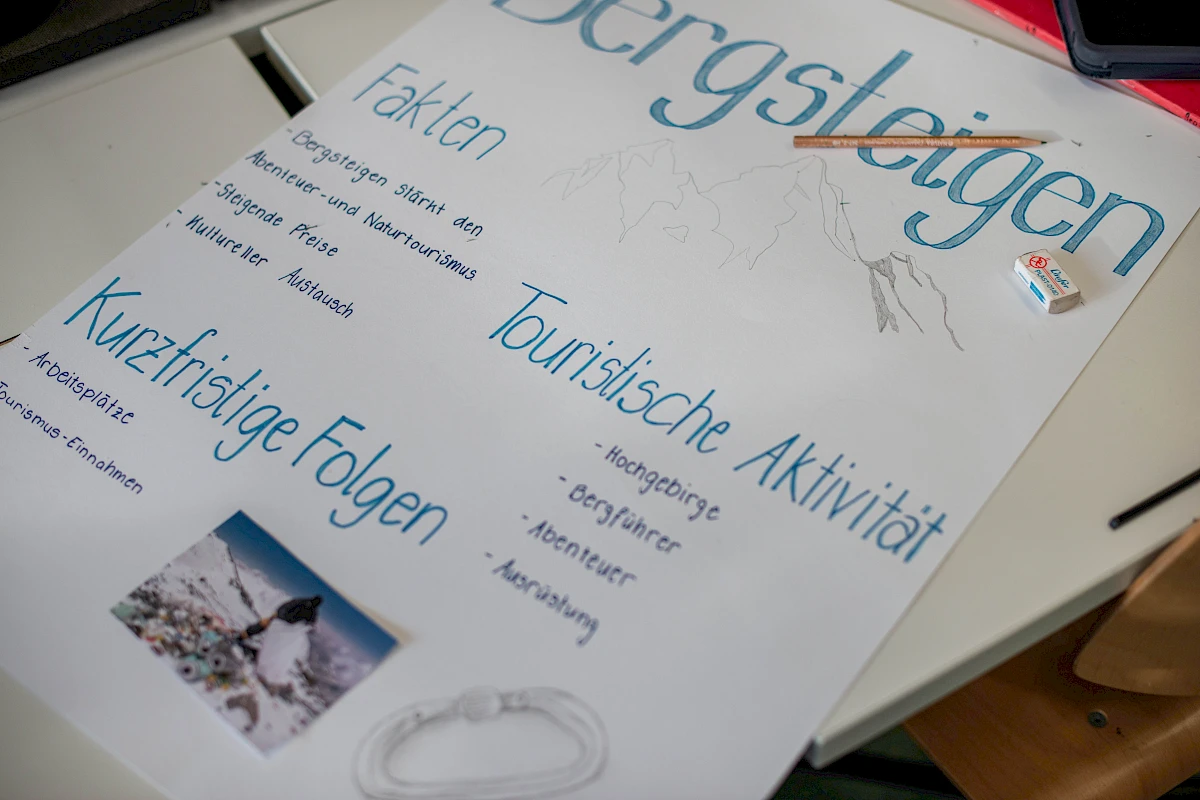 Bergsteigen
Fakten
- Bergsteigen stärkt den
Abenteuer-und Naturtourismus
- Steigende Preise
- Kultureller Austausch
Kurzfristige Folgen
- Arbeitsplätze
Tourismus-Einnahmen
Touristische Aktivität
- Hochgebirge
- Bergführer
- Abenteuer
- Ausrüstung
Läufer
PLAST-0140